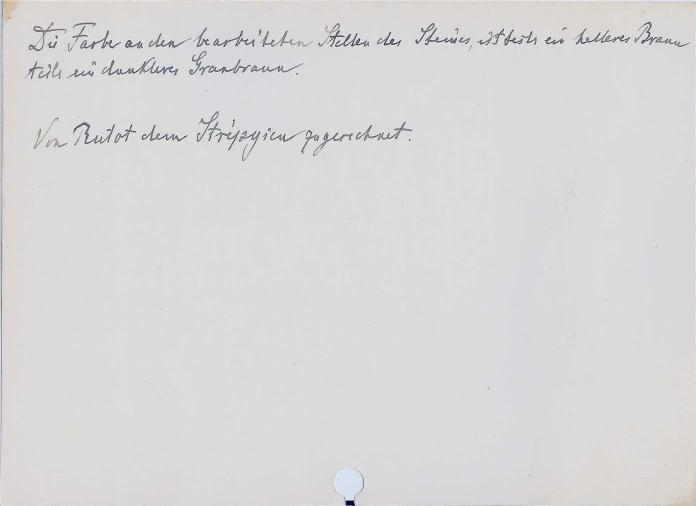 Die Farbe an den bearbeiteten Stellen des Steines, ist teils ein helleres Braun
teils ein dunkleres Graubraun.
Von Rutot dem Strépyien zugerechnet.